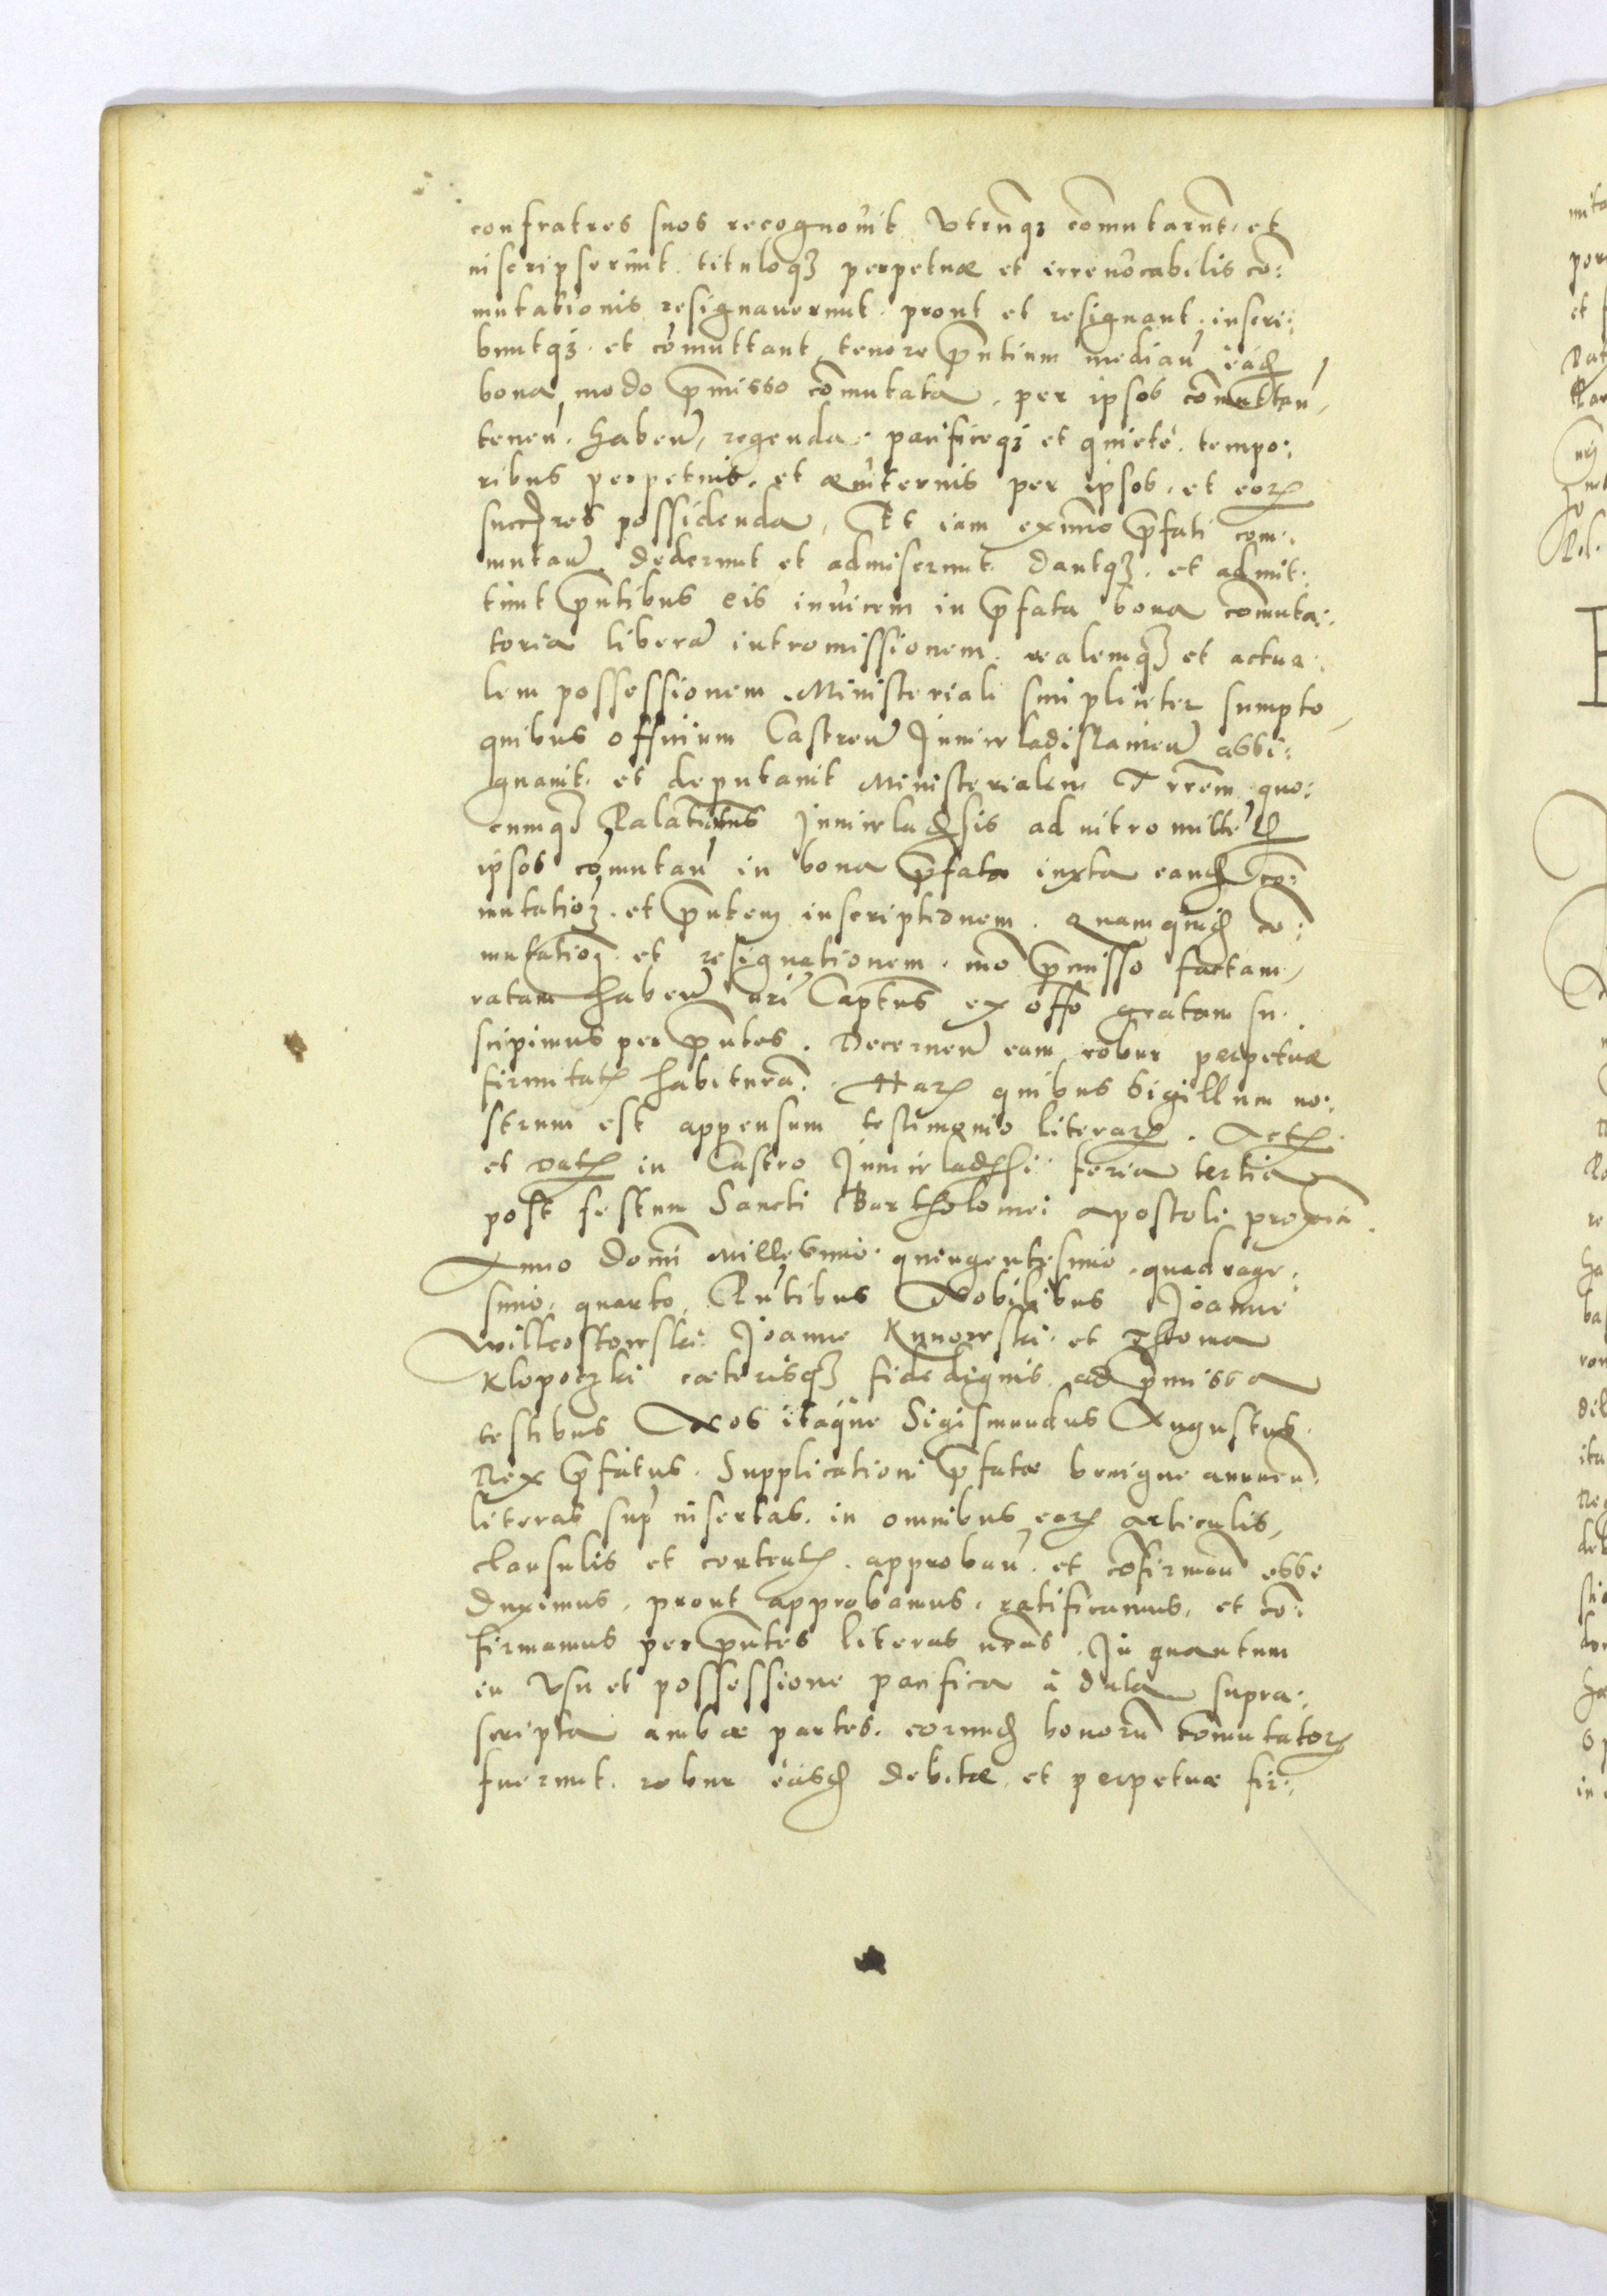 confratres suos recognouit Vtrinq3 comutarunt, et
inscripserunt. tituloq3 perpetuæ et irreuocabilis co:
mutationis resignauerunt. prout et resignant. inscri:
buntq3. et comuttant tenore pntium mediañ ead
bona modo pmisso comutata, per ipsos comuttañ,
teneñ. habeñ, regenda, pacificeq3 et quiete. tempo:
ribus perpetuis, et æuiternis per ipsos, et eor
succres possidenda, Et iam ex nunc pfati com:
mutañ. dederunt et admiserunt. dantq3. et admit:
tunt pntibus eis inuicem in pfata bona comuta:
toria liberã intromissionem. realemq3 et actua:
lem possessionem. Ministeriali simpliciter sumpto,
quibus officium Castreñ Juniwladislauieñ assi:
gnauit. et deputauit Ministerialem Trrem quo:
cumq3 Palatinus Juniwladsis ad intromitteñd
ipsos comutañ in bona pfata iuxta eand co:
mutatio3. et pntem inscriptionem. Quamquid co:
mutatio3. et resignationem. mõ pmisso factam,
ratam habeñ nri Captus ex offo gratam su:
scipimus per pntes. Decerneñ eam robur perpetuæ
firmitat habiturã. Har quibus Sigillum no:
strum est appensum testimonio literar. Act
et Dat in Castro Juniwladsi feria tertia
post festum Sancti Bartholomei Apostoli proxia.
Anno Domi Millesimo quingentesimo. quadrage:
simo, quarto. Pntibus Nobilibus Joanne
Wilkostowski Joanne Kunowski et Thoma
Klopoczki cæterisq3 fidedignis ad pmissa
testibus Nos itaque Sigismundus Augustus
Rex pfatus. Supplicationi pfatæ benigne annueñ.
literas supr insertas. in omnibus ear articulis,
clausulis et content. approbañ. et cofirmañ esse
duximus, prout approbamus. ratificamus, et co:
firmamus per pntes literas nras. In quantum
in Vsu et possessione pacifica à data supra:
scripta ambæ partes. eorund bonorũ comutator
fuerunt. robur easd debitæ, et perpetuæ fir: